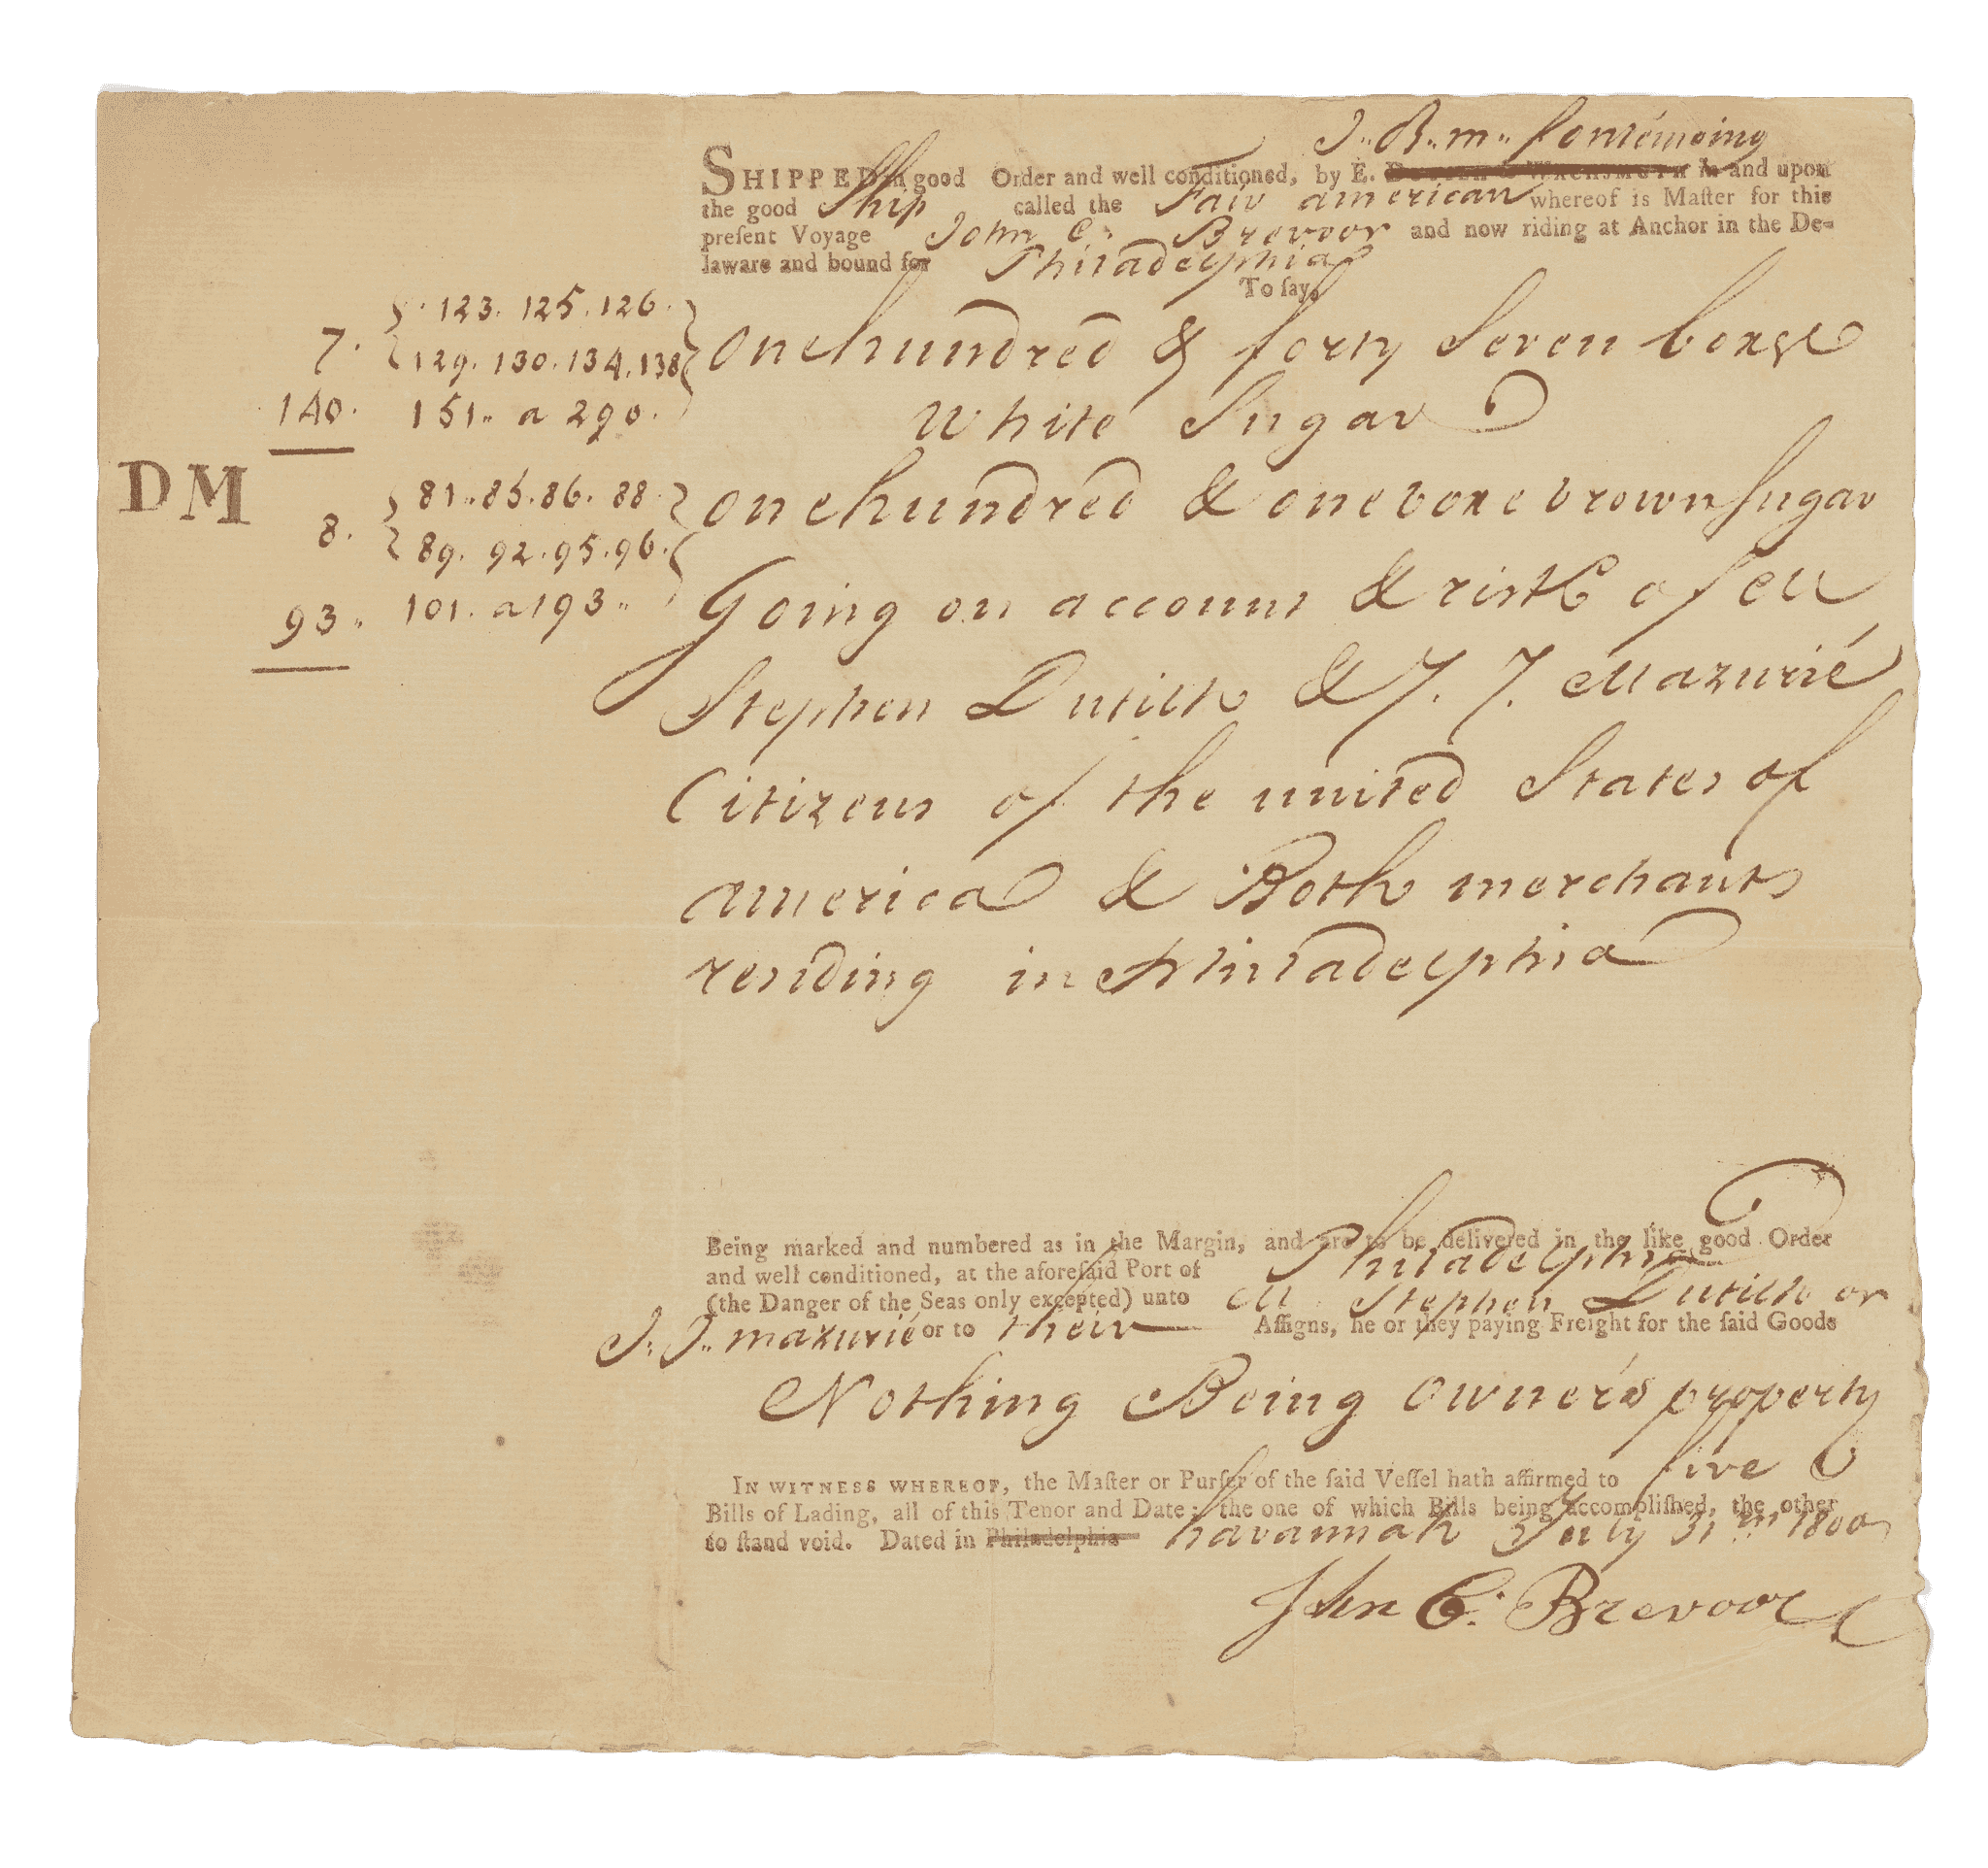 J.. B.. m.. fontémoing
SHIPPED in good Order and well conditioned, by E. Dutilh & Wachsmuth in and upon
the good Ship called the Fair american whereof is Maſter for this
preſent Voyage John C. Brevoor and now riding at Anchor in the De-
laware and bound for Philadelphia
To ſay,
7. 123. 125. 126.
129. 130. 134. 138
onehundred & forty Seven boxes
140. 151.. a 290.
White Sugar
DM
8. 81.. 85. 86. 88.
89. 92. 95. 96.
onehundred & one boxe brown Sugar
93.. 101. a 193..
Going on account & risk of M
Stephen Dutilh & J. J. Mazurié
Citizens of the united States of
america & Both merchants
residing in Philadelphia
Being marked and numbered as in the Margin, and are to be delivered in the like good Order
and well conditioned, at the aforeſaid Port of Philadelphia
(the Danger of the Seas only excepted) unto M Stephen Dutilh or
J.. J.. mazurié or to their Aſſigns, he or they paying Freight for the ſaid Goods
Nothing Being owner's property
IN WITNESS WHEREOF, the Maſter or Purſer of the ſaid Veſſel hath affirmed to five
Bills of Lading, all of this Tenor and Date; the one of which Bills being accompliſhed, the other
to ſtand void. Dated in Philadelphia havannah July 31.th 1800
John C. Brevoor